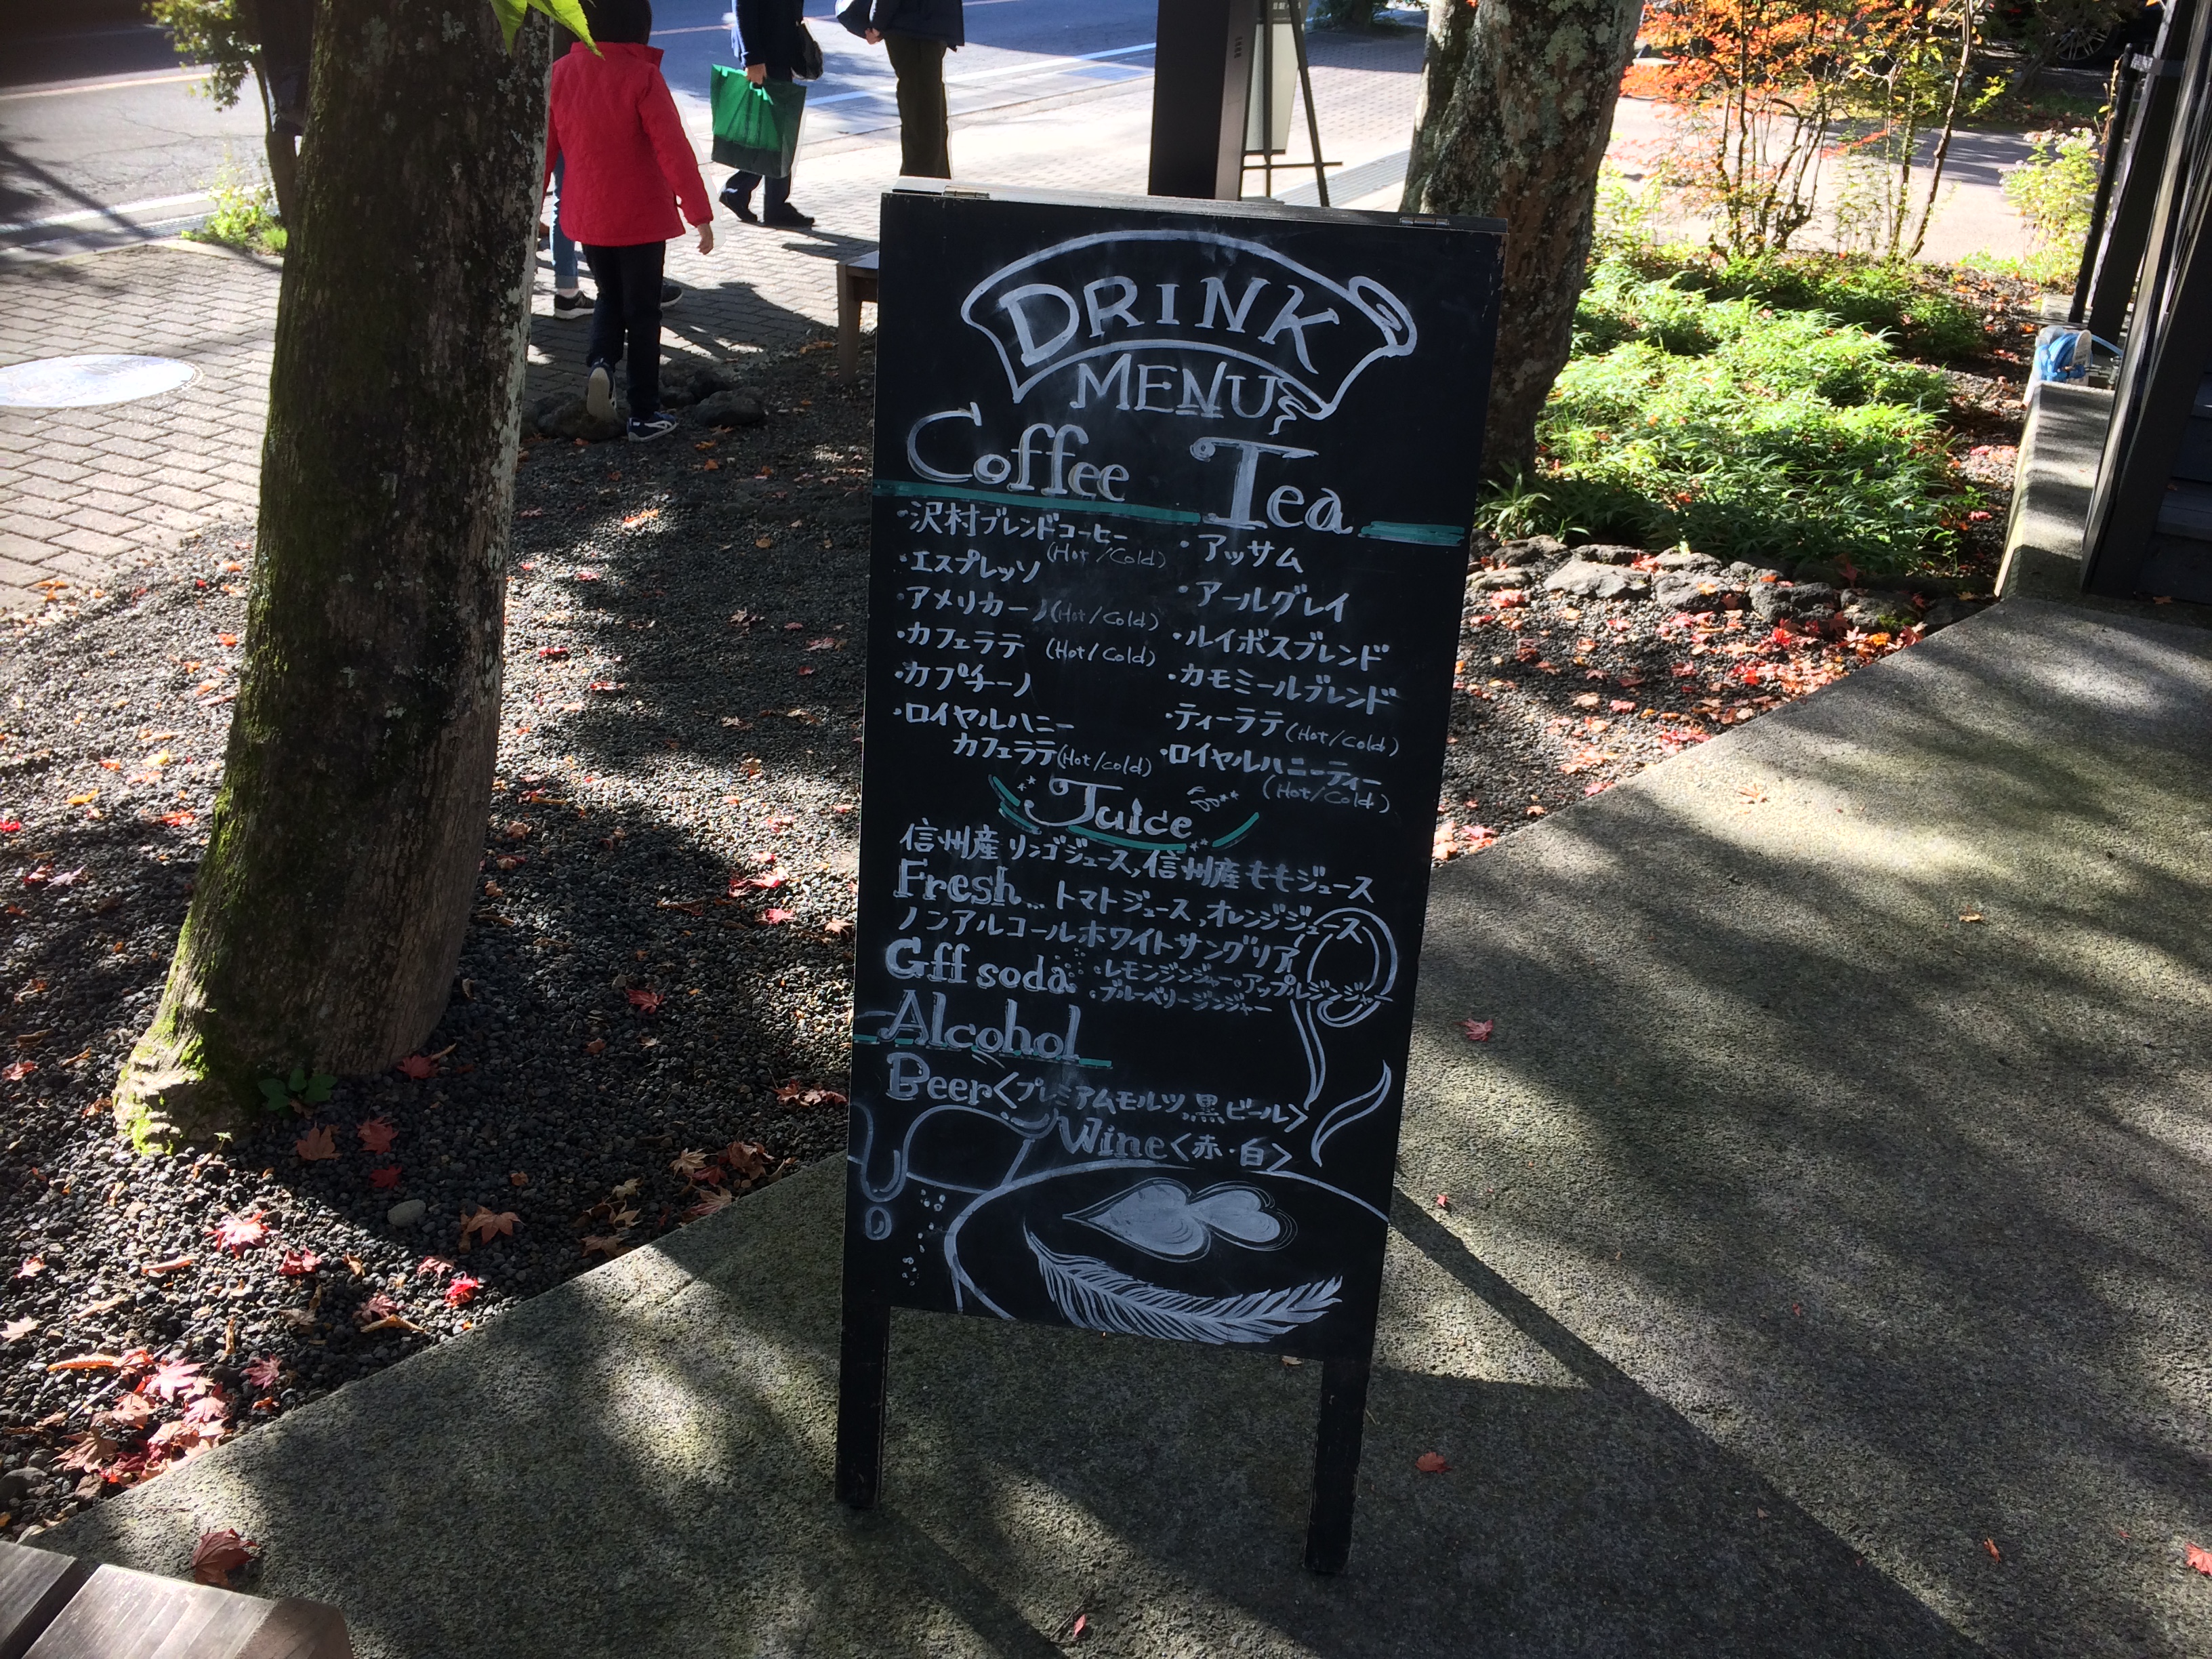 DRINK
MENU
Coffee
・沢村ブレンドコーヒー
(Hot/Cold)
・エスプレッソ
・アメリカーノ(Hot/Cold)
・カフェラテ (Hot/Cold)
・カプチーノ
・ロイヤルハニー
カフェラテ(Hot/Cold)
Tea
・アッサム
・アールグレイ
・ルイボスブレンド
・カモミールブレンド
・ティーラテ(Hot/Cold)
・ロイヤルハニーティー
(Hot/Cold)
Juice
信州産リンゴジュース,信州産ももジュース
Fresh...トマトジュース,オレンジジュース
ノンアルコールホワイトサングリア
Gff soda ・レモンジンジャー・アップルジンジャー
・ブルーベリージンジャー
Alcohol
Beer<プレミアムモルツ,黒ビール>
Wine<赤・白>